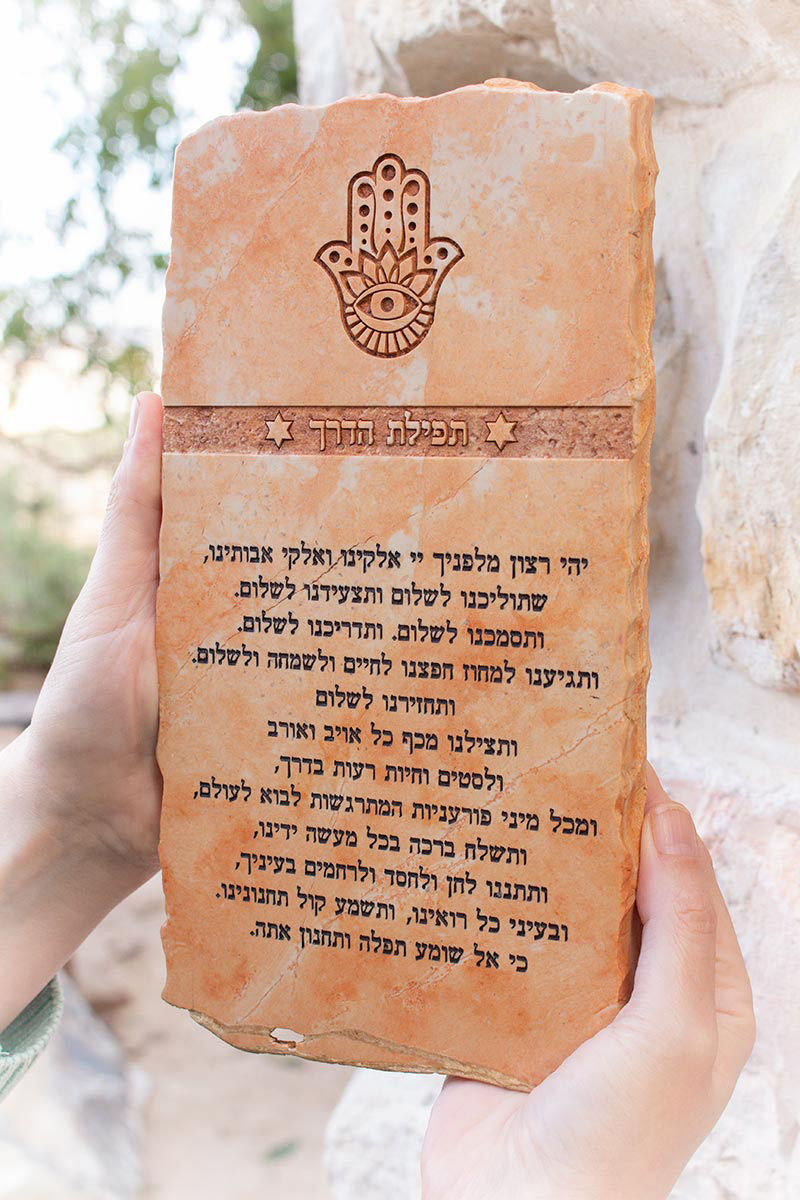 תפילת הדרך
יהי רצון מלפניך יי אלקינו ואלקי אבותינו,
שתוליכנו לשלום ותצעידנו לשלום.
ותסמכנו לשלום. ותדריכנו לשלום.
ותגיענו למחוז חפצנו לחיים ולשמחה ולשלום.
ותחזירנו לשלום
ותצילנו מכף כל אויב ואורב
ולסטים וחיות רעות בדרך,
ומכל מיני פורעניות המתרגשות לבוא לעולם,
ותשלח ברכה בכל מעשה ידינו,
ותתננו לחן ולחסד ולרחמים בעיניך,
ובעיני כל רואינו, ותשמע קול תחנונינו.
כי אל שומע תפלה ותחנון אתה.